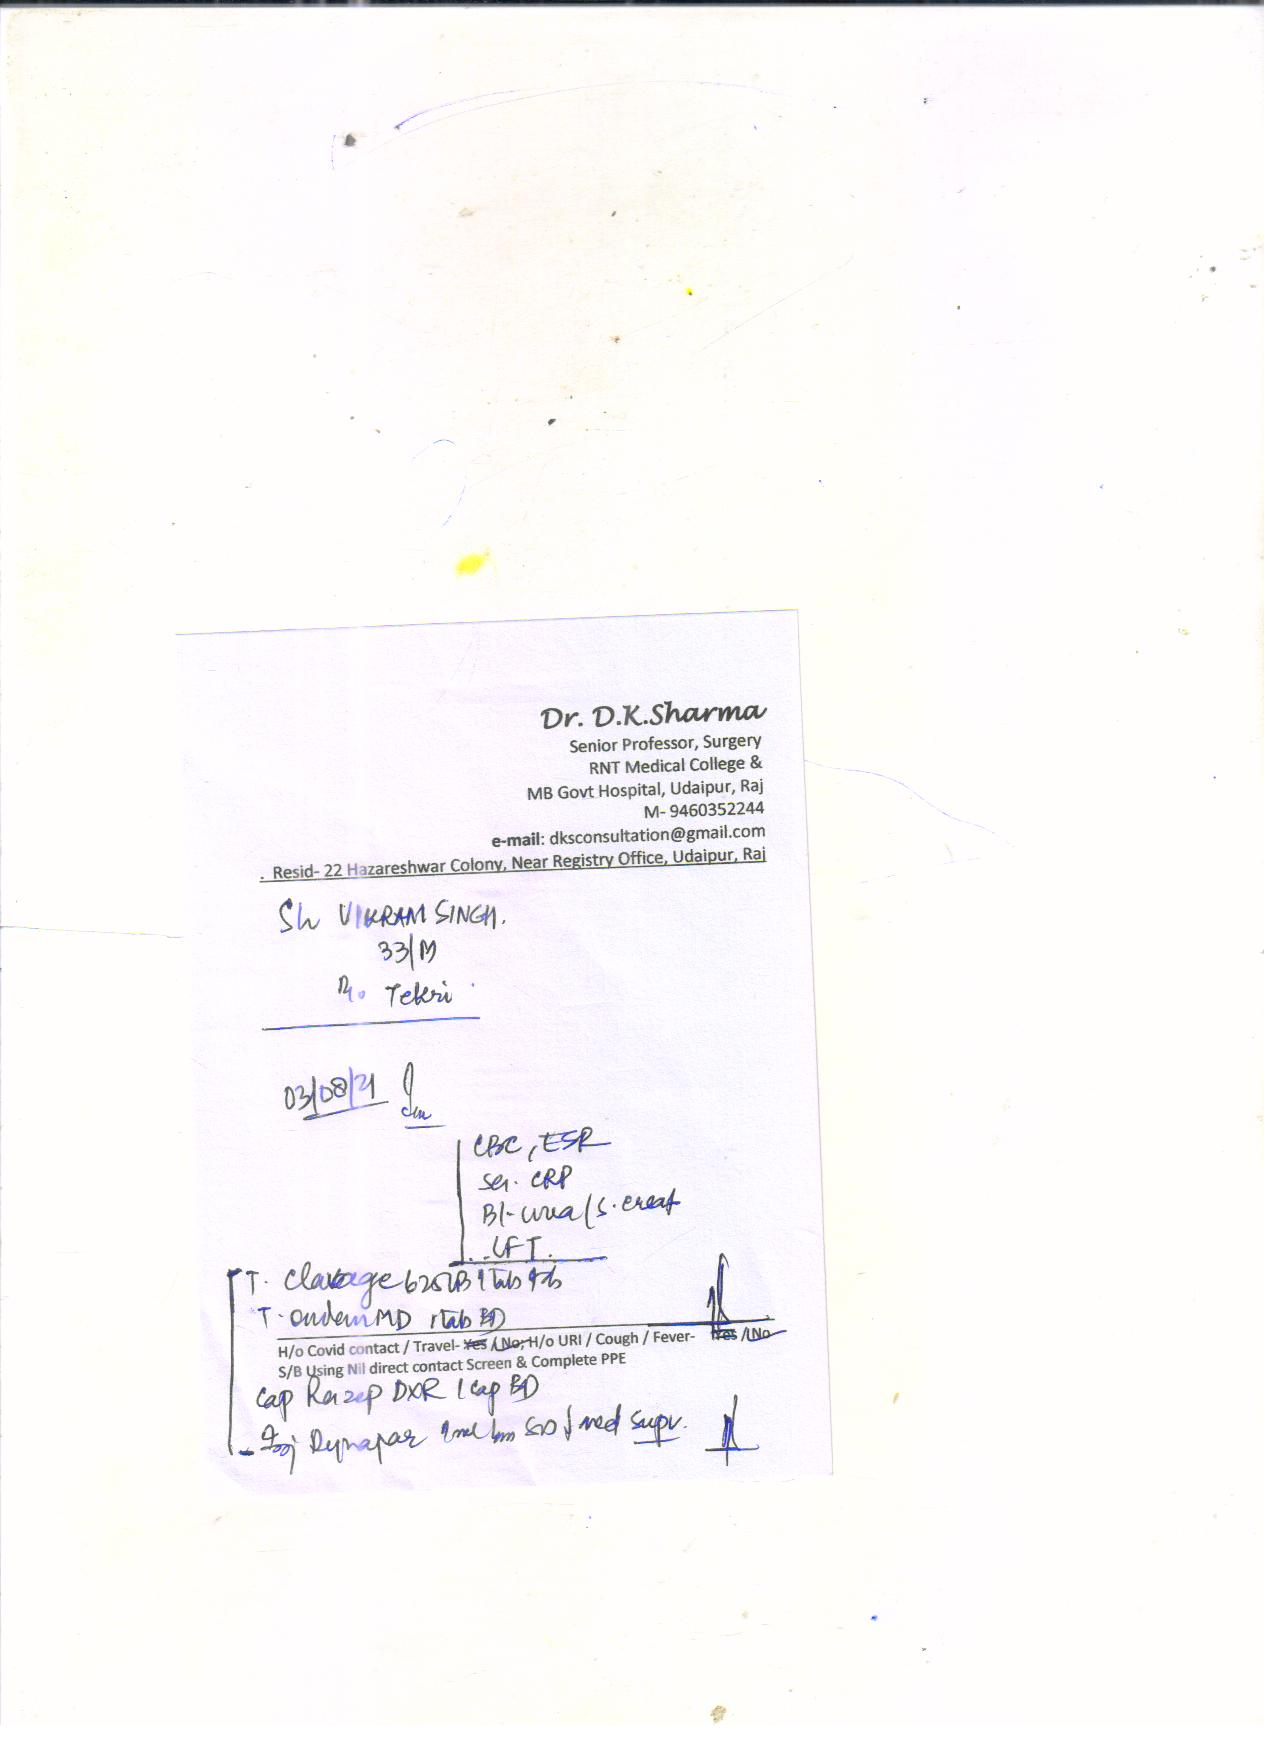 Dr. D.K.Sharma
Senior Professor, Surgery
RNT Medical College &
MB Govt Hospital, Udaipur, Raj
M- 9460352244
e-mail: dksconsultation@gmail.com
. Resid- 22 Hazareshwar Colony, Near Registry Office, Udaipur, Raj
Sh VIKRAM SINGH.
33/M
R/o Tekri
03/08/21 Adv
CBC, ESR
Ser. CRP
Bl- urea / S. creat
LFT.
T. 625 1 Tab
T. Ondem MD 1 Tab BD
H/o Covid contact / Travel- Yes / No; H/o URI / Cough / Fever- Yes / No
S/B Using Nil direct contact Screen & Complete PPE
Cap DXR 1 Cap BD
Inj Dynapar Im med supv.